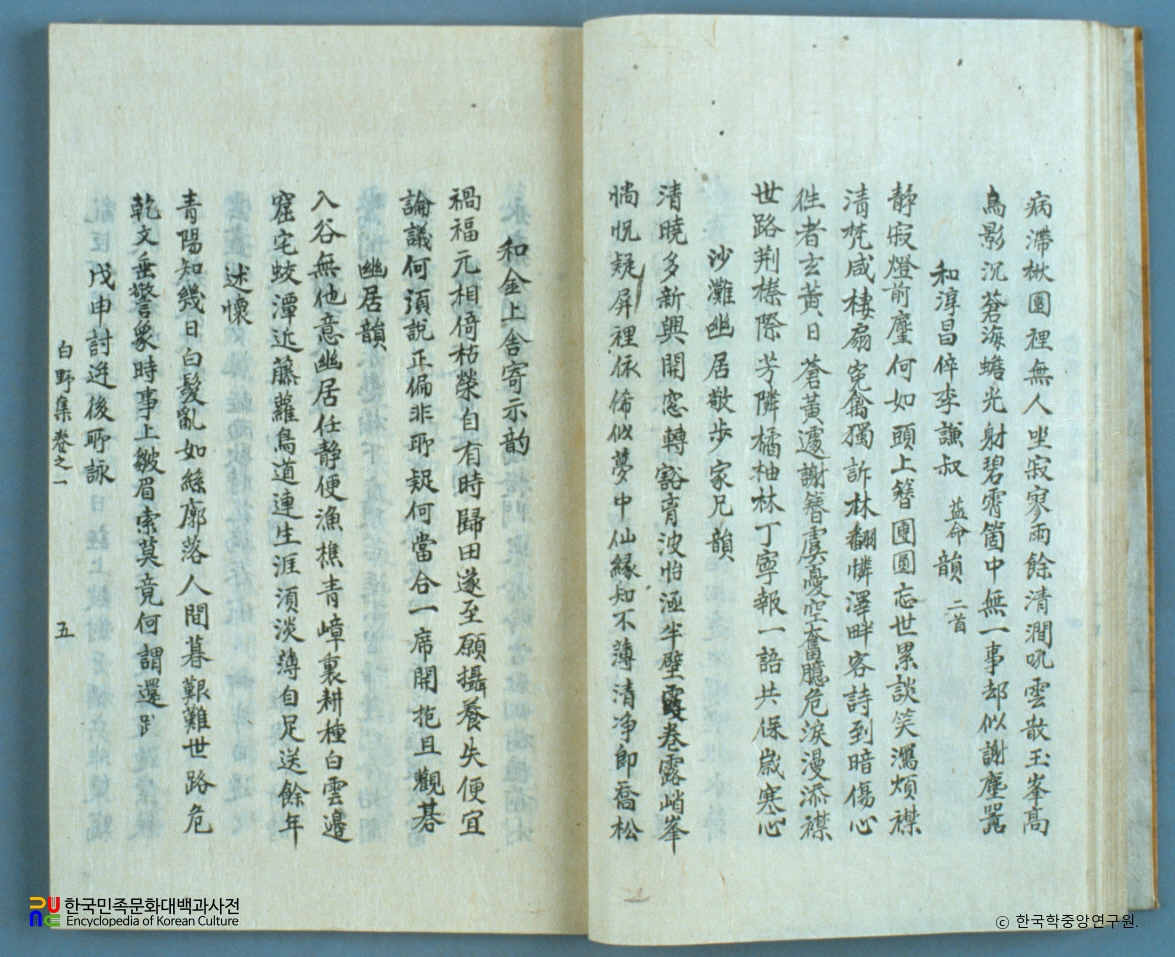 病滯楸園裡無人坐寂寥雨餘清澗吼雲散玉峯高
鳥影沉蒼海蟾光射碧霄箇中無一事却似謝塵嚣
和淳昌倅李謙叔 益命 韻 二首
靜寂燈前塵何如頭上簪團圓忘世累談笑瀉煩襟
清梵咸棲扇寃禽獨訴林翻憐澤畔客詩到暗傷心
徃者玄黃日蒼黃遽謝簪虞憂空奮臆危淚漫添襟
世路荆榛際芳隣橘柚林丁寧報一語共保歲寒心
沙灘幽居敬步家兄韻
清曉多新興開窓轉豁育波怡涵半壁霞卷露峭峯
惝怳疑屛裡依俙似夢中仙緣知不薄清净卽喬松
和金上舍寄示韵
禍福元相倚枯榮自有時歸田遂至願攝養失便宜
論議何須說正偏非所疑何當合一席開抱且觀碁
幽居韻
入谷無他意幽居任静便漁樵青嶂裏耕種白雲邊
窟宅蛟潭近藤蘿鳥道連生涯須淡薄自足送餘年
述懷
青陽知幾日白髮亂如絲廓落人間暮艱難世路危
乾文垂警象時事上皺眉索莫竟何謂還
戊申討逆後所詠
白野集卷之一 五
한국민족문화대백과사전
Encyclopedia of Korean Culture
ⓒ 한국학중앙연구원.